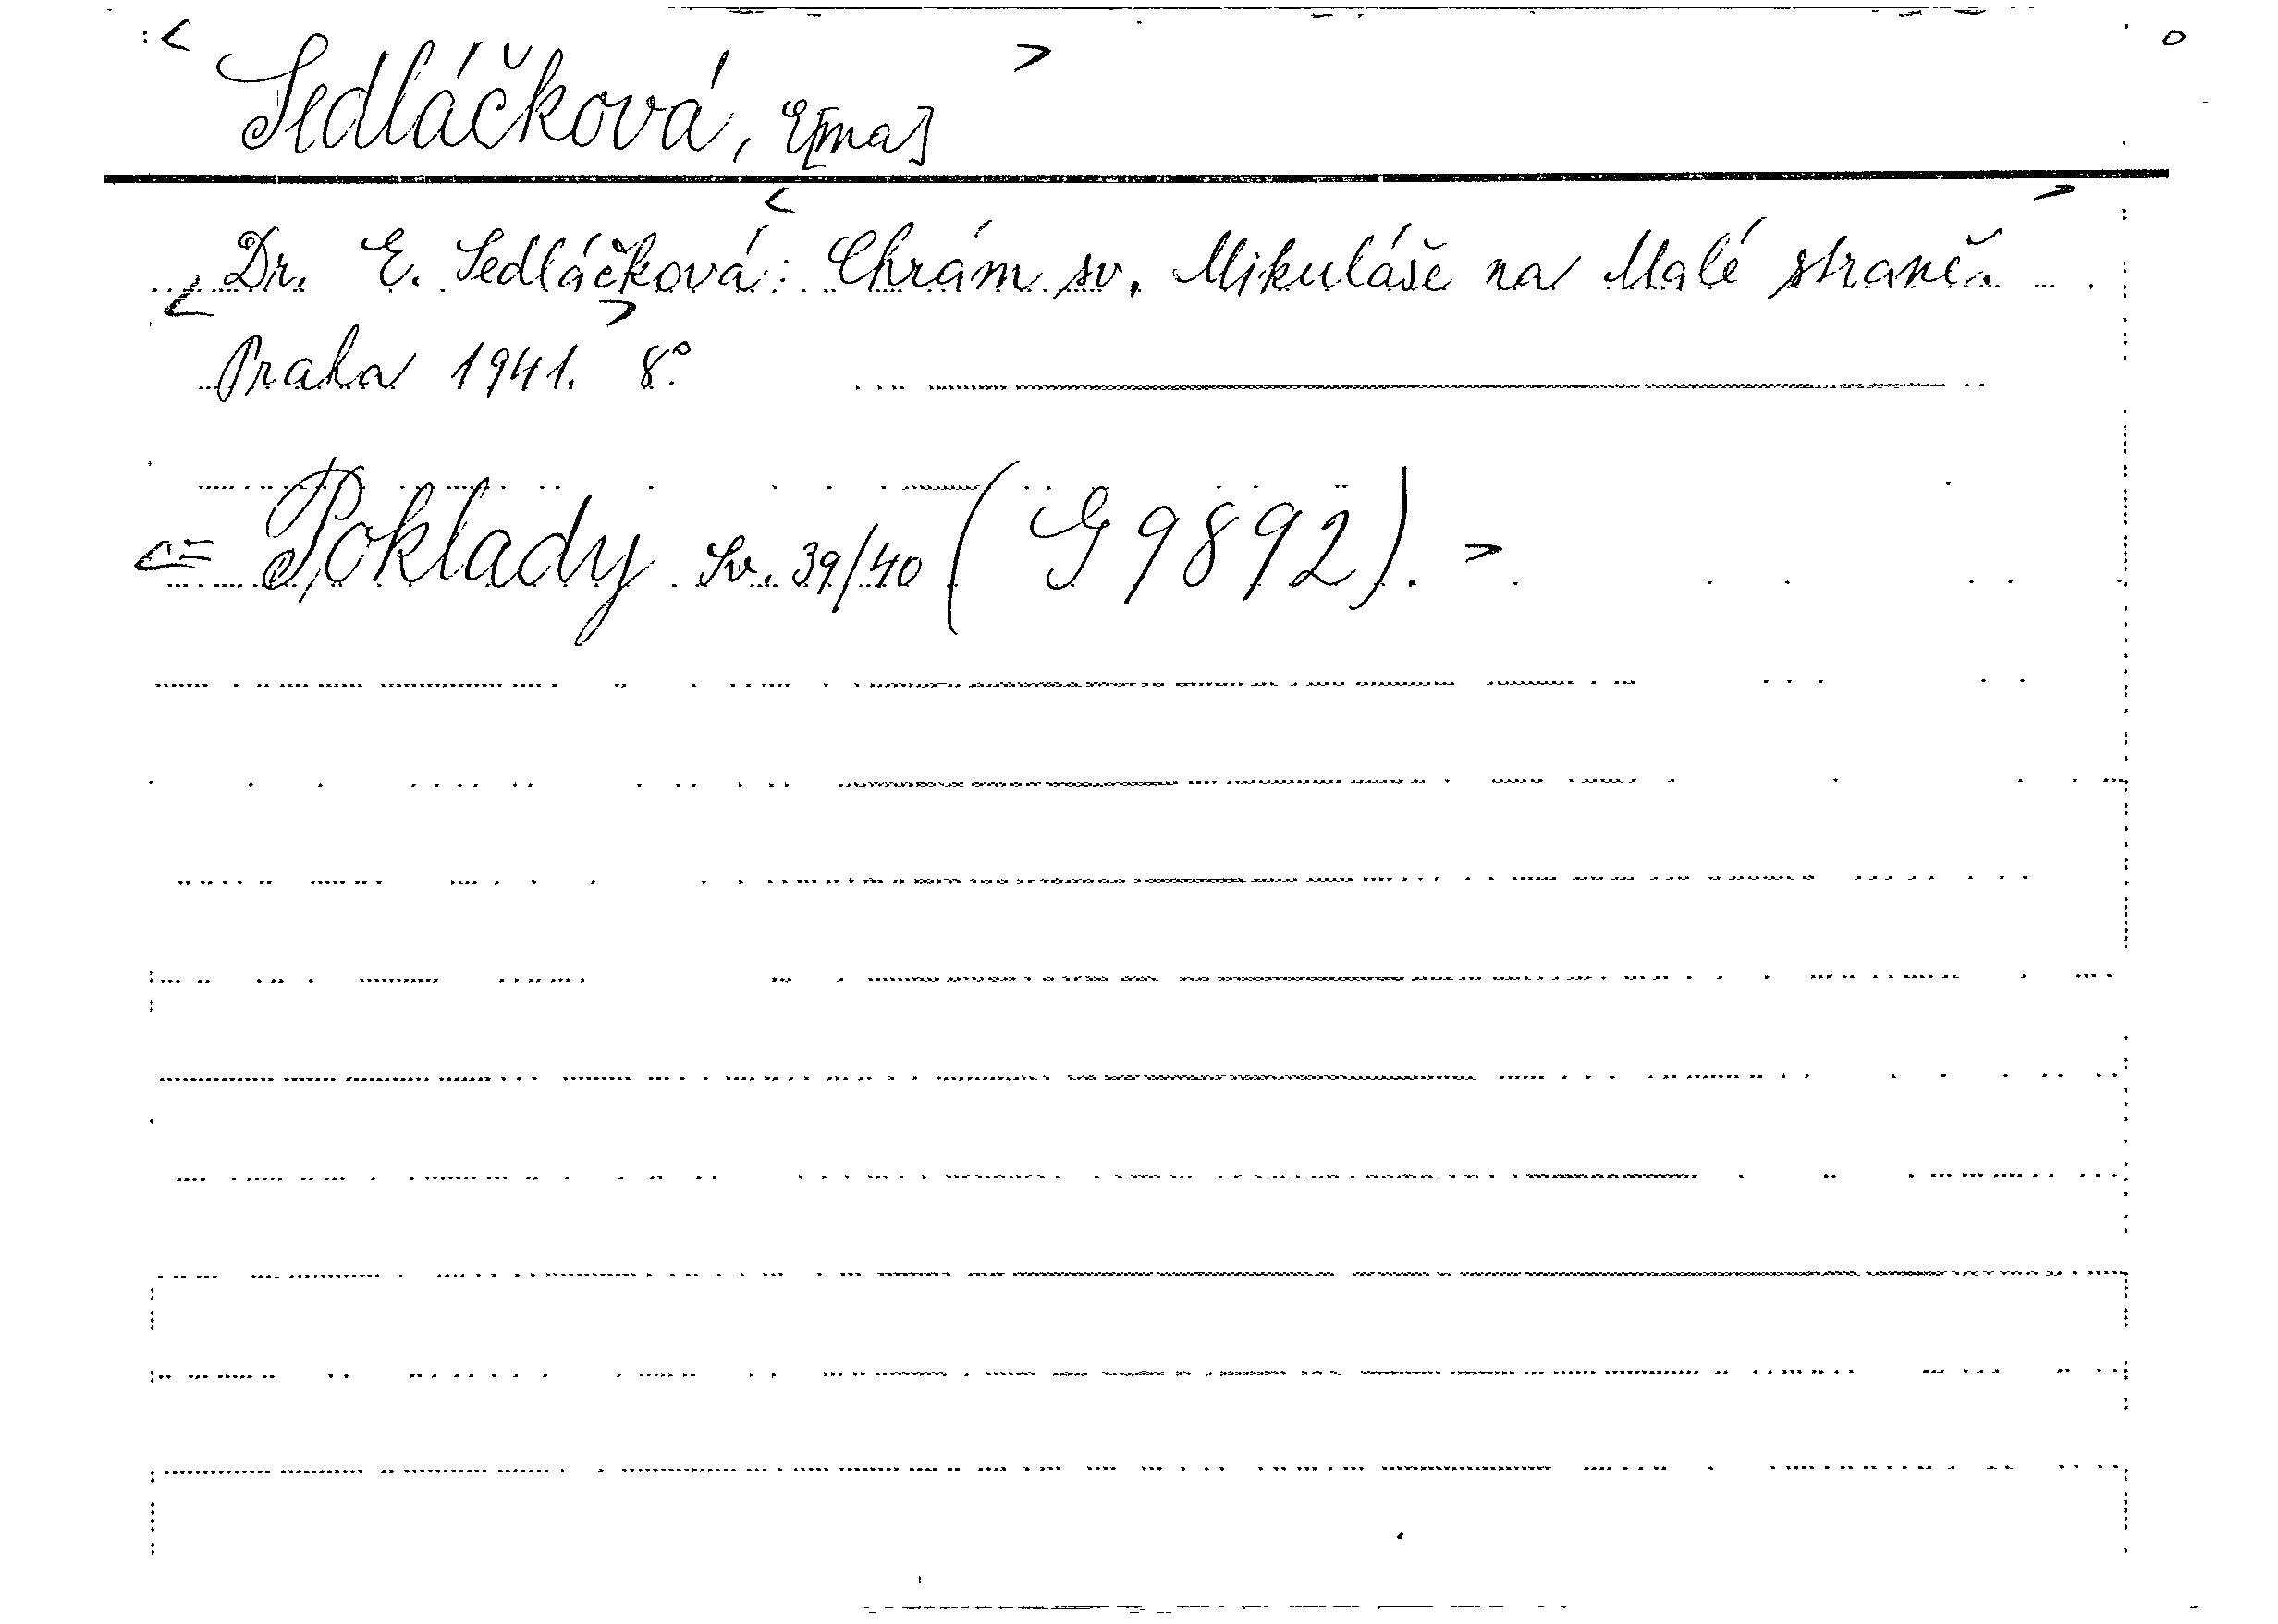 < Sedláčková, E[ma] >
Dr. E. Sedláčková: < Chrám sv. Mikuláše na Malé straně. >
< Praha 1941. > 8°
<= Poklady Sv. 39/40 (G 9892). >